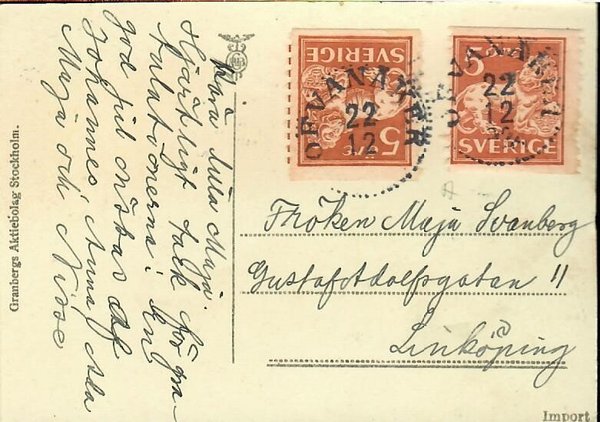 Kära lilla Maja.
Hjärtligt tack för gra-
tulationerna! En
god jul önskas af
Johannes, Anna, Ala
Maja och Nisse
Granbergs Aktiebolag Stockholm.
SVERIGE
5
SVERIGE
5
22
12
22
12
Fröken Maja Svanberg
Gustaf Adolfsgatan 11
Linköping
Import